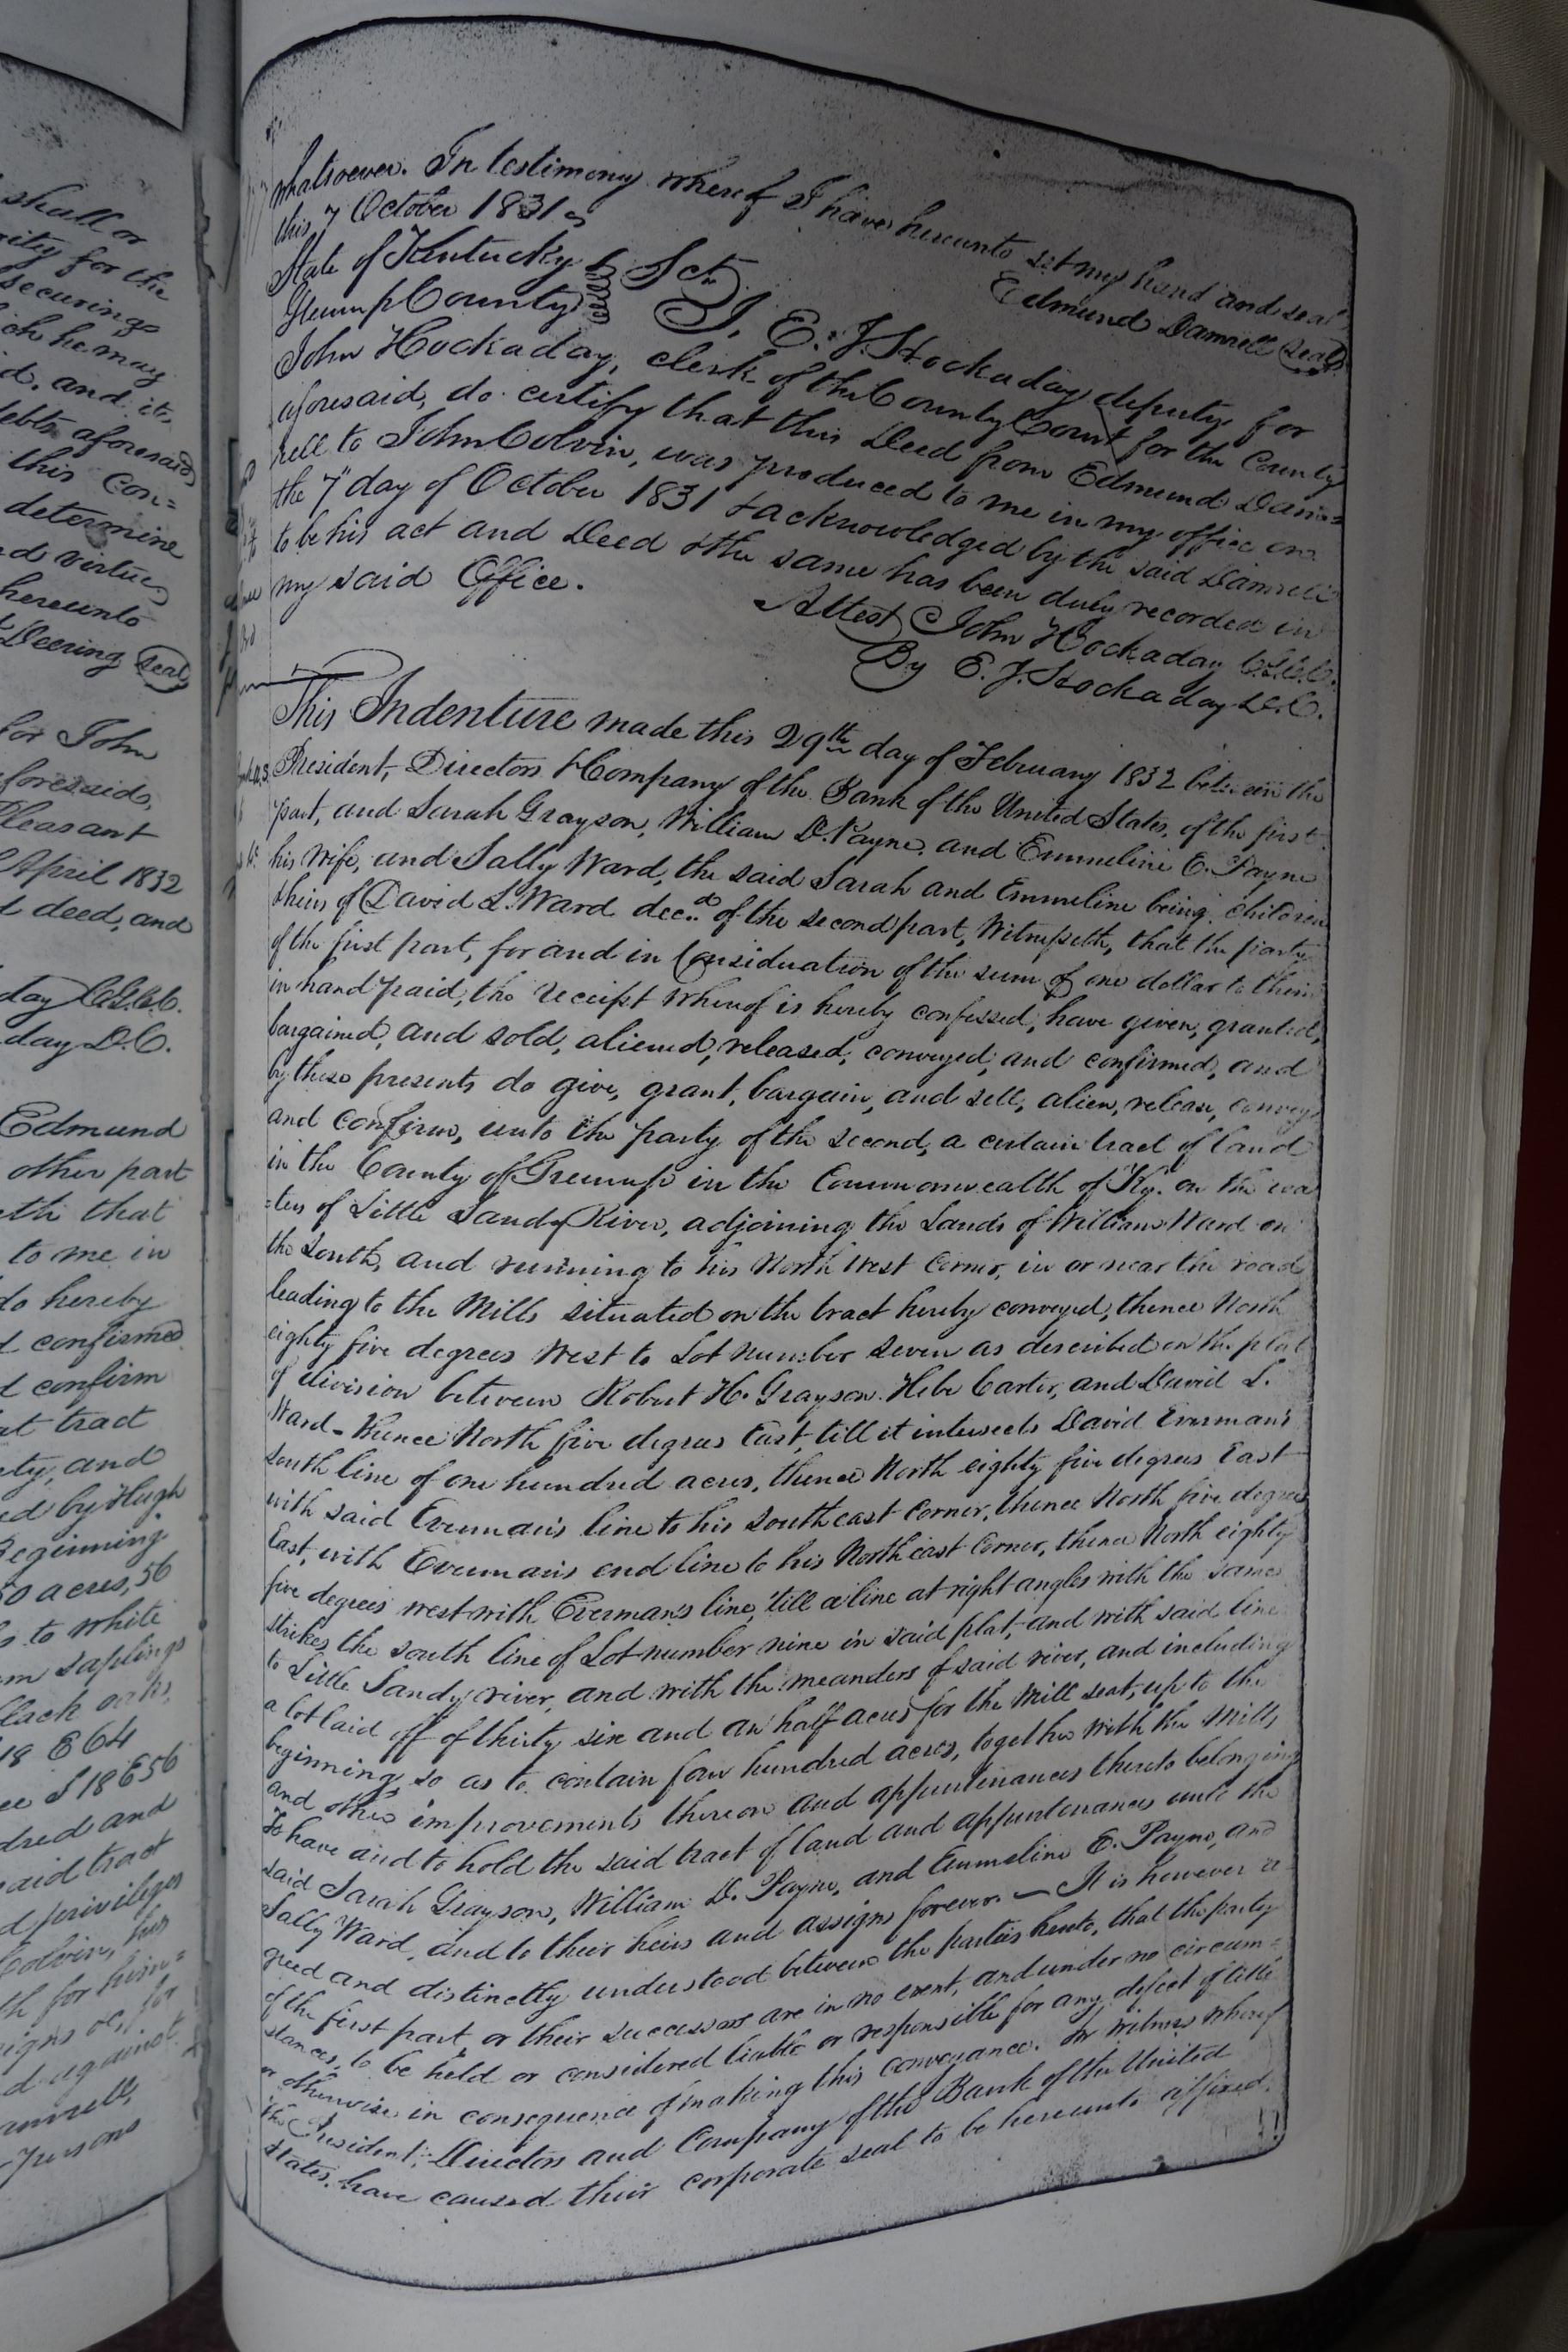 shall or
rity for the
securing
ich he may
d. and its
debts aforesaid
this Con=
determine
nd virtue
hereunto
Deering Seal
for John
aforesaid,
Pleasant
April 1832
t deed, and
day C.G.C.C.
day D.C.
Edmund
other part
eth that
to me in
do hereby
d confirmed
d confirm
at tract
ety, and
ed by Hugh
Beginning
50 acres, 56
s to white
m saplings
lack oaks,
18 E 64
ce S 18 E 56
dred and
said tract
d privileges
Colvin, his
th for him=
signs &c, for
d against
amrell,
persons
whatsoever. In testimony whereof I have hereunto set my hand and seal
this 7 October 1831
Edmund Damrell Seal
State of Kentucky Sct
Greenup County
I, E. J. Hockaday deputy for
John Hockaday, clerk of the County Court for the County
aforesaid, do certify that this Deed from Edmund Dam=
rell to John Colvin, was produced to me in my office on
the 7" day of October 1831 & acknowledged by the said Damrell
to be his act and Deed & the same has been duly recorded in
my said Office.
Attest John Hockaday C.G.C.C.
By E. J. Hockaday D.C.
This Indenture made this 29th day of February 1832 between the
President, Directors & Company of the Bank of the United States, of the first
part, and Sarah Grayson, William D. Payne, and Emmeline E. Payne
his wife, and Sally Ward, the said Sarah and Emmeline being children
& heirs of David L. Ward decd. of the second part, Witnesseth, that the party
of the first part, for and in Consideration of the sum of one dollar to them
in hand paid, the receipt whereof is hereby confessed, have given, granted,
bargained, and sold, aliened, released, conveyed, and confirmed, and
by these presents do give, grant, bargain, and sell, alien, release, convey
and confirm, unto the party of the second, a certain tract of land
in the County of Greenup in the Commonwealth of Ky. on the wa
=ters of Little Sandy River, adjoining the Lands of William Ward on
the South, and running to his North West Corner, in or near the road
leading to the Mills situated on the tract hereby conveyed, thence North
eighty five degrees West to Lot number seven as described on the plat
of division between Robert H. Grayson Hebe Carter, and David L.
Ward - thence North five degrees East, till it intersects David Everman's
south line of one hundred acres, thence North eighty five degrees East
with said Everman's line to his south east Corner, thence North five degrees
East, with Everman's end line to his North east Corner, thence North eighty
five degrees west with Everman's line, 'till a line at right angles with the same
strikes the south line of Lot number nine in said plat, and with said line
to Little Sandy river, and with the meanders of said river, and including
a lot laid off of thirty six and an half acres for the Mill seat, up to the
beginning, so as to contain four hundred acres, together with the Mills
and other improvements thereon and appurtenances thereto belonging
To have and to hold the said tract of land and appurtenances unto the
said Sarah Grayson, William D. Payne, and Emmeline E. Payne, and
Sally Ward, and to their heirs and assigns forever. — It is however a
greed and distinctly understood between the parties hereto, that the party
of the first part or their successors are in no event, and under no circum=
stances, to be held or considered liable or responsible for any defect of title
or otherwise in consequence of making this conveyance. In witness whereof
the President, Directors and Company of the Bank of the United
States, have caused their corporate seal to be hereunto affixed.